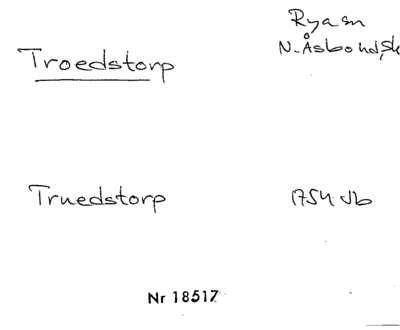 Troedstorp
Ryasn
N. Åsbohd, Sk
Truedstorp
1754 Jb
Nr 18517